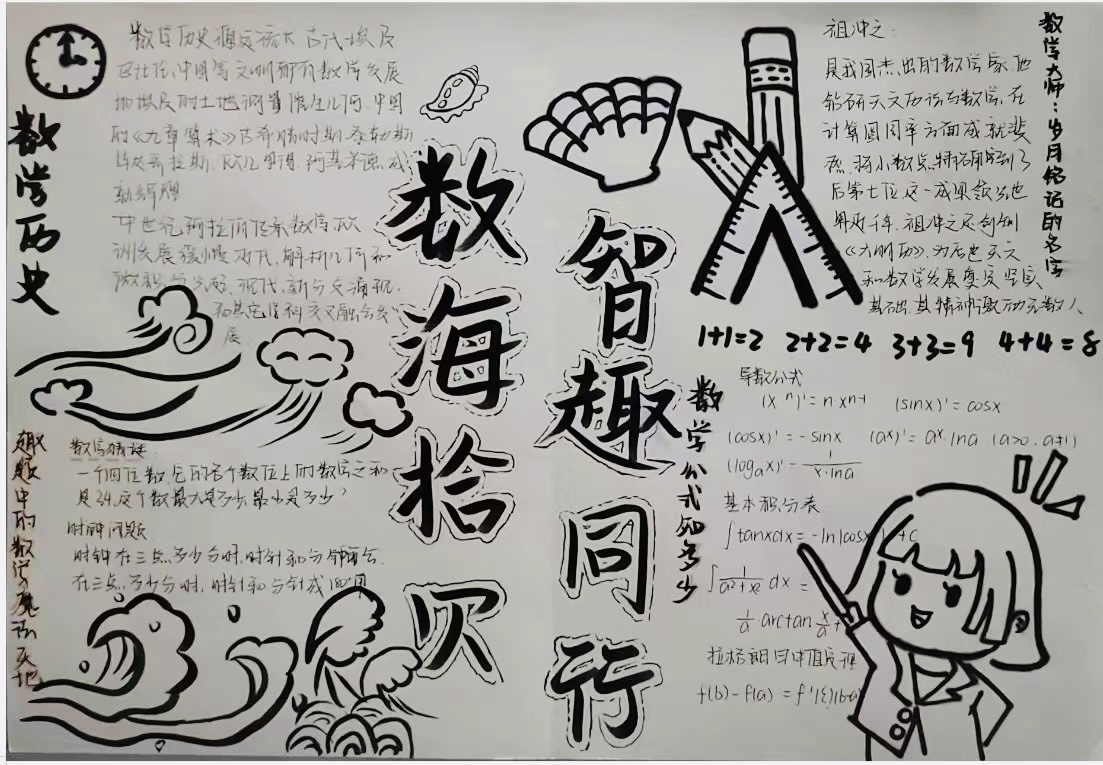 数学历史
数学历史源远流长 古代埃及
巴比伦,中国等文明都有数学发展
如埃及的土地测量催生几何.中国
的《九章算术》古希腊时期.泰勒斯
毕达哥拉斯.欧几里得.阿基米德.成
就辉煌
中世纪阿拉伯传承数学,欧
洲发展缓慢 近代.解析几何和
微积分 现代.新分支涌现.
和其它学科交叉融合发
展
数海拾贝
智趣同行
祖冲之:
是我国杰出的数学家.他
钻研天文历法与数学.在
计算圆周率方面成就斐
然.将小数点精确到了
后第七位.这一成果领先世
界近千年.祖冲之还创制
《大明历》.为后世天文
和数学发展奠定坚实
基础.其精神激励无数人
数学大师:岁月铭记的名字
1+1=2 2+2=4 3+3=9 4+4=8
数学公式知多少
导数公式
(xⁿ)'=n xⁿ⁻¹ (sinx)'=cosx
(cosx)'=-sinx (aˣ)'=aˣ.lna (a>0.a≠1)
(logₐx)'=1/(x·lna)
基本积分表
∫tanxdx=-ln|cosx +C
∫1/(a²+x²) dx =
1/a·arctan x/a+
拉格朗日中值定理
f(b)-f(a)=f'(ξ)(b-a)
趣题中的数学魔法天地
数字猜谜
一个四位数.它的各个数位上的数字之和
是34.这个数最大是多少.最小是多少?
时钟问题
时钟在三点.多少分时.时针和分钟重合.
在三点.多少分时.时针和分针成